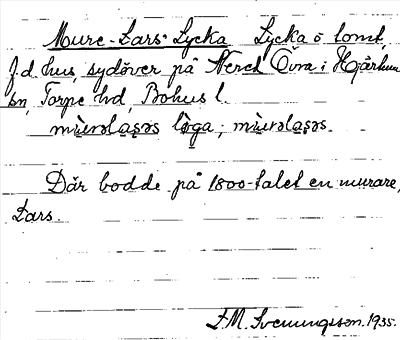 Mure-Lars' Lycka Lycka o tomt,
f.d. hus, sydöver på Nered Övra i Hjärtum
sn, Torpe hd, Bohus l.
mùrəlaṣəs lò̜ga; mùrəlaṣəs.
Där bodde på 1800-talet en murare,
Lars.
F.M. Svenungsson. 1935.